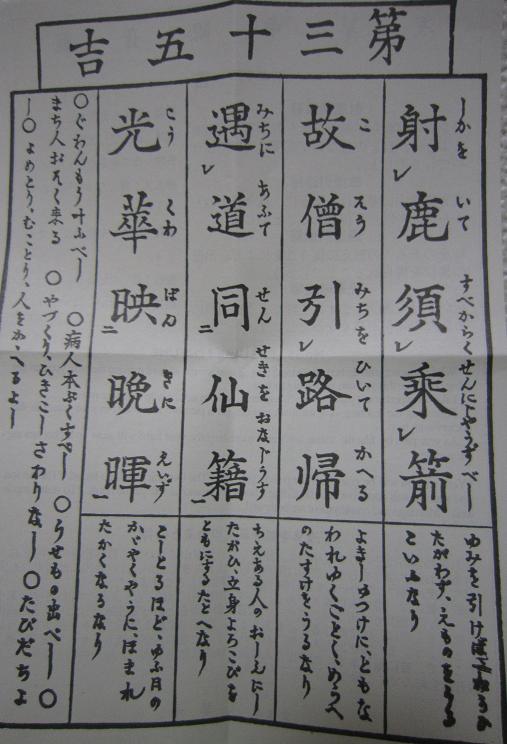 第三十五吉
射鹿須乗箭
しかを いて すべからくせんにじやうすべし
ゆみを引けばこゝろ
たがわず、えものをうる
といふなり
故僧引路帰
こ そう みちを ひいて かへる
よきしゆつけに、ともな
われゆくごとく、めうへ
のたすけをうるなり
遇道同仙籍
みちに あふて せん せきを おなじうす
ちえある人のおしえにし
たがひ、立身よろこびを
ともにするたとへなり
光華映晩暉
こう くわ ばん きに えいず
としとるほど、ゆふ月の
かゞやくやうに、ほまれ
たかくなるなり
○ぐわんもう叶ふべし ○病人本ぶくすべし ○うせもの出べし ○
まち人おそく来る ○やづくり、ひきこしさわりなし ○たびだちよ
し ○よめとり、むことり、人をかゝへるよし